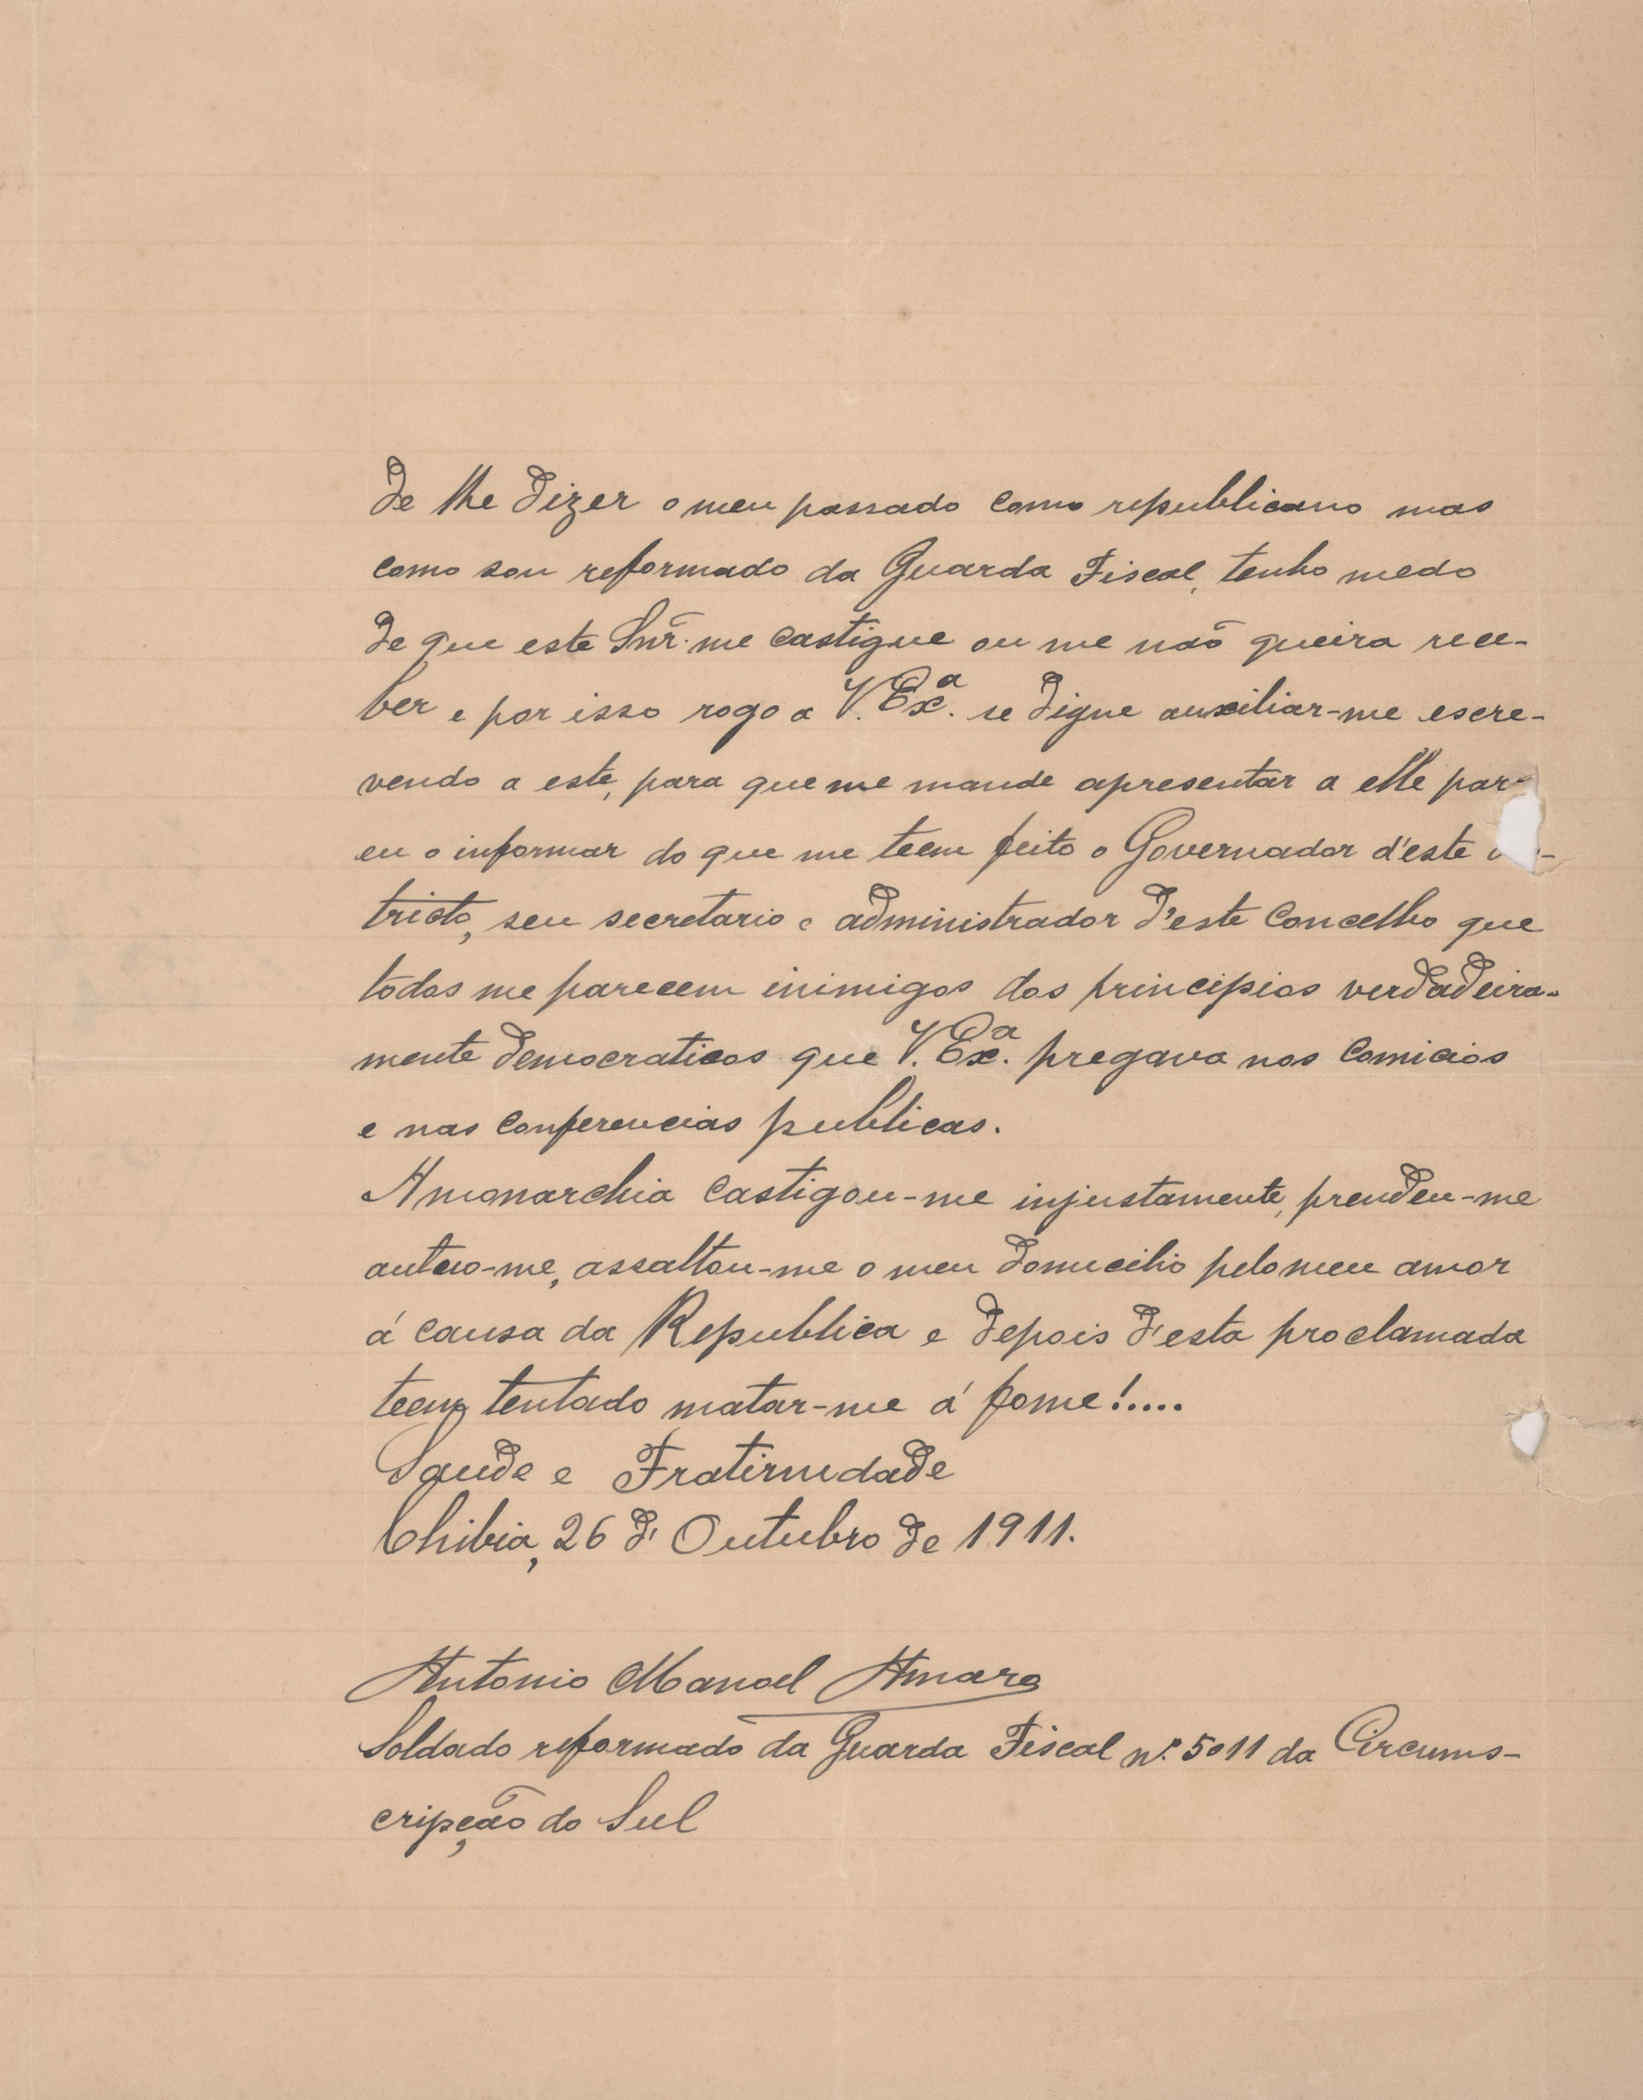 de lhe dizer o meu passado como republicano mas
como sou reformado da Guarda Fiscal, tenho medo
de que este Snr. me castigue ou me não queira rece-
ber e por isso rogo a V. Exª. se digne auxiliar-me escre-
vendo a este, para que me mande apresentar a elle par
eu o informar do que me teem feito o Governador d'este
tricto, seu secretario e administrador d'este Concelho que
todos me parecem inimigos dos principios verdadeira-
mente democraticos que V. Exª. pregava nos Comicios
e nas Conferencias publicas.
A monarchia castigou-me injustamente, prendeu-me
autuo-me, assaltou-me o meu domicilio pelo meu amor
á causa da Republica e depois d'esta proclamada
teem tentado matar-me á fome!....
Saude e Fraternidade
Chibia, 26 d' Outubro de 1911.
Antonio Manoel Amaro
Soldado reformado da Guarda Fiscal nº. 5011 da Circums-
cripção do Sul